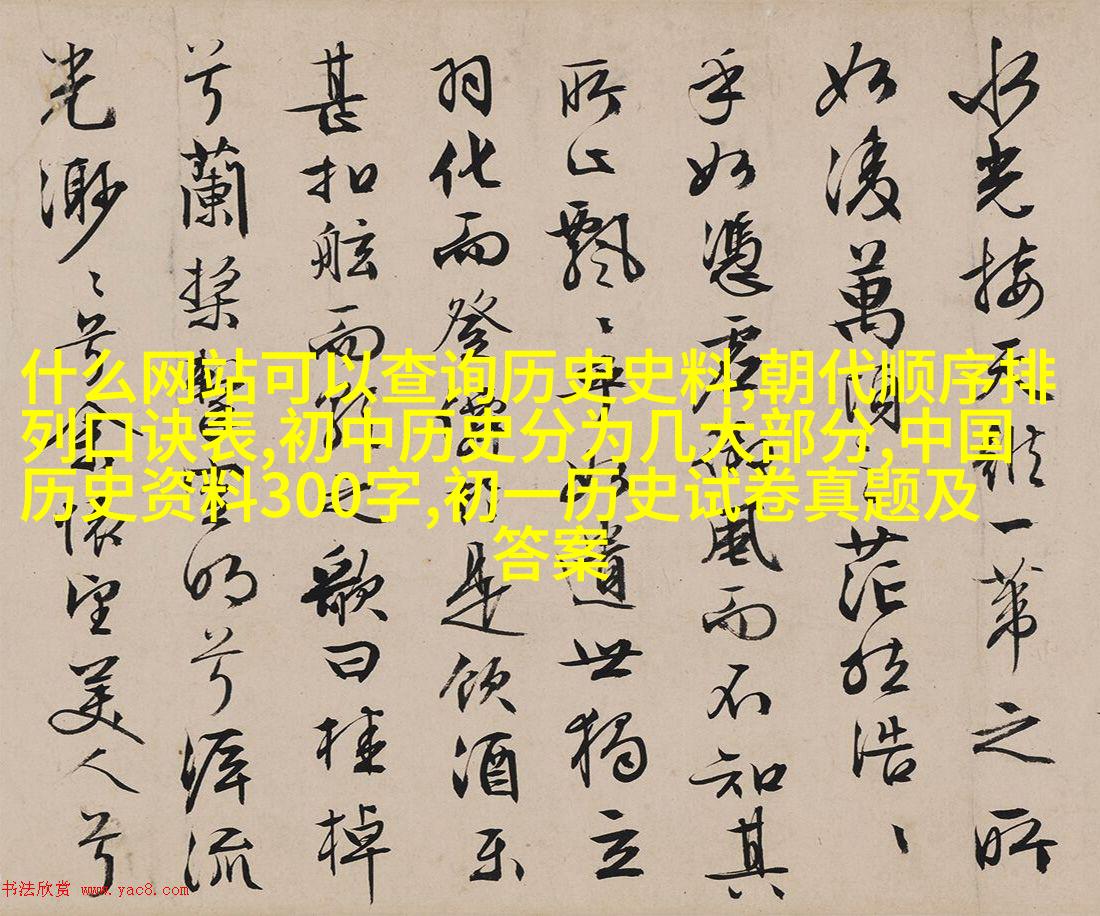 水光接天縱一葦之所
如凌萬頃之茫然浩、
乎如憑虛御風而不知其
所止飄、乎如遺世獨立
羽化而登僊於是飲酒樂
甚扣舷而歌之歌曰桂棹
兮蘭槳擊空明兮泝流
光渺、兮余懷望美人兮
什么网站可以查询历史史料,朝代顺序排
列口诀表,初中历史分为几大部分,中国
历史资料300字,初一历史试卷真题及
答案
书法欣赏 www.yac8.com